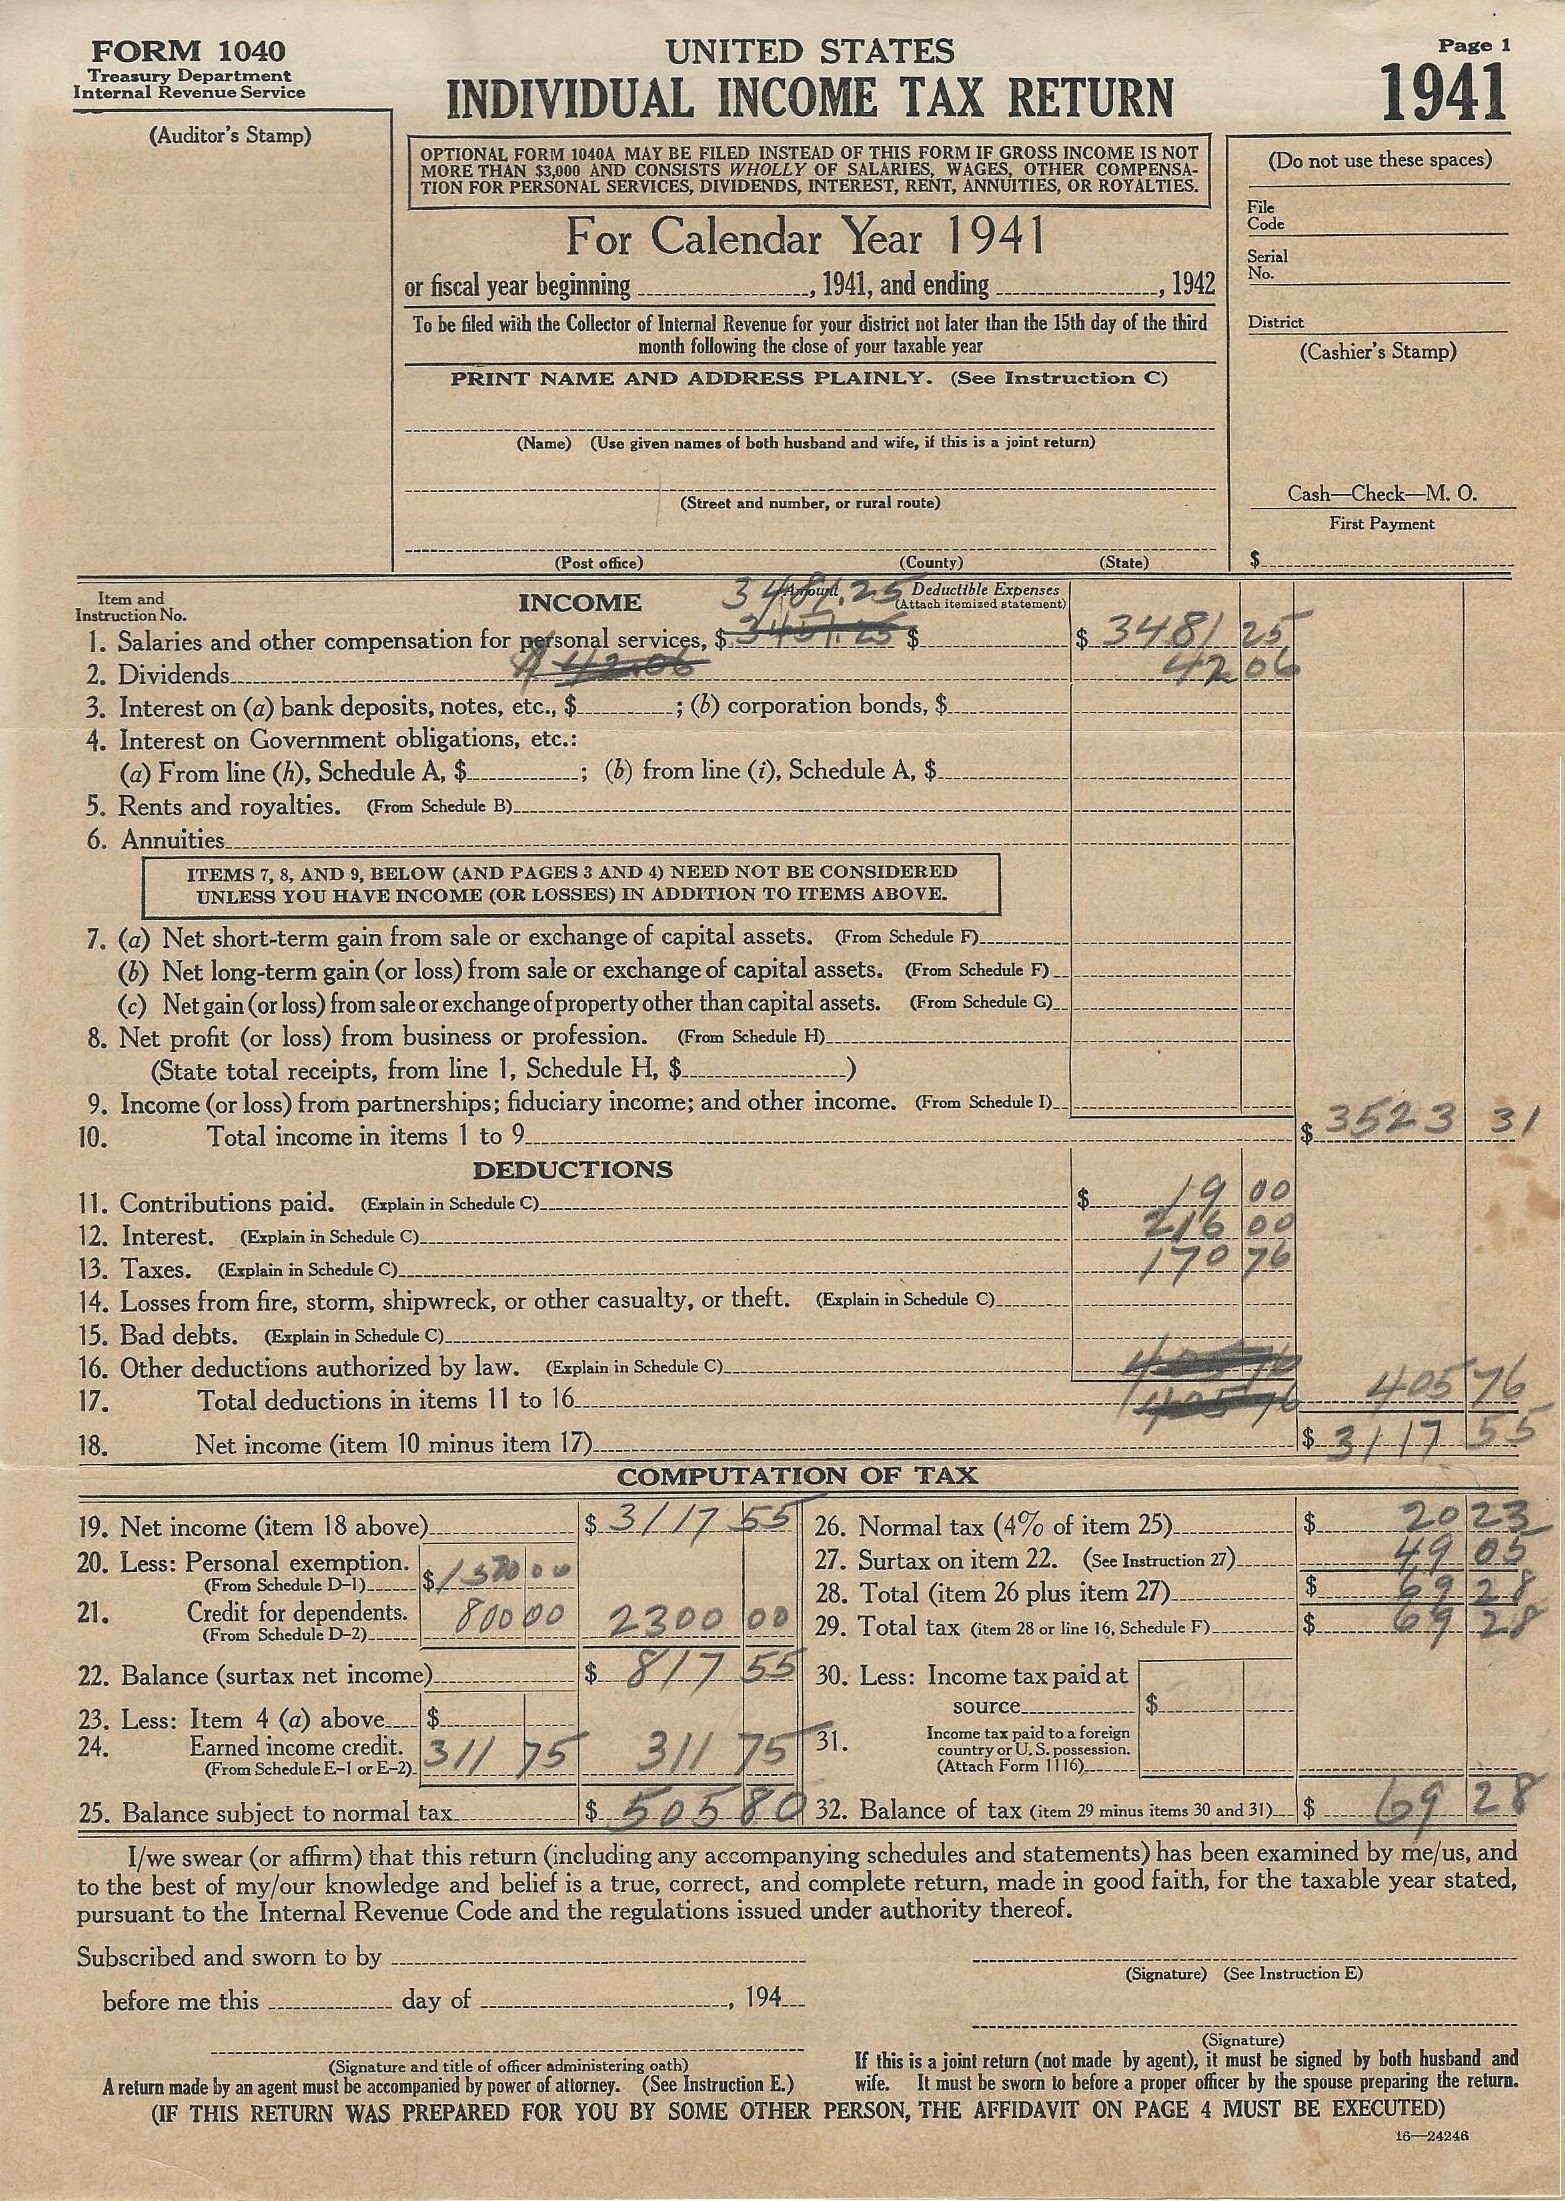 FORM 1040
Treasury Department
Internal Revenue Service
(Auditor's Stamp)
UNITED STATES
INDIVIDUAL INCOME TAX RETURN
Page 1
1941
OPTIONAL FORM 1040A MAY BE FILED INSTEAD OF THIS FORM IF GROSS INCOME IS NOT
MORE THAN $3,000 AND CONSISTS WHOLLY OF SALARIES, WAGES, OTHER COMPENSA-
TION FOR PERSONAL SERVICES, DIVIDENDS, INTEREST, RENT, ANNUITIES, OR ROYALTIES.
For Calendar Year 1941
or fiscal year beginning , 1941, and ending , 1942
To be filed with the Collector of Internal Revenue for your district not later than the 15th day of the third
month following the close of your taxable year
PRINT NAME AND ADDRESS PLAINLY. (See Instruction C)
(Name) (Use given names of both husband and wife, if this is a joint return)
(Street and number, or rural route)
(Post office) (County) (State)
(Do not use these spaces)
File
Code
Serial
No.
District
(Cashier's Stamp)
Cash—Check—M. O.
First Payment
$
Item and
Instruction No.
INCOME
3481.25
Amount
Deductible Expenses
(Attach itemized statement)
1. Salaries and other compensation for personal services, $ 3451.25 $ $ 3481 25
2. Dividends $ 42.06 42 06
3. Interest on (a) bank deposits, notes, etc., $ ; (b) corporation bonds, $
4. Interest on Government obligations, etc.:
(a) From line (h), Schedule A, $ ; (b) from line (i), Schedule A, $
5. Rents and royalties. (From Schedule B)
6. Annuities
ITEMS 7, 8, AND 9, BELOW (AND PAGES 3 AND 4) NEED NOT BE CONSIDERED
UNLESS YOU HAVE INCOME (OR LOSSES) IN ADDITION TO ITEMS ABOVE.
7. (a) Net short-term gain from sale or exchange of capital assets. (From Schedule F)
(b) Net long-term gain (or loss) from sale or exchange of capital assets. (From Schedule F)
(c) Net gain (or loss) from sale or exchange of property other than capital assets. (From Schedule G)
8. Net profit (or loss) from business or profession. (From Schedule H)
(State total receipts, from line 1, Schedule H, $ )
9. Income (or loss) from partnerships; fiduciary income; and other income. (From Schedule I)
10. Total income in items 1 to 9 $ 3523 31
DEDUCTIONS
11. Contributions paid. (Explain in Schedule C) $ 19 00
12. Interest. (Explain in Schedule C) 216 00
13. Taxes. (Explain in Schedule C) 170 76
14. Losses from fire, storm, shipwreck, or other casualty, or theft. (Explain in Schedule C)
15. Bad debts. (Explain in Schedule C)
16. Other deductions authorized by law. (Explain in Schedule C) 405 76
17. Total deductions in items 11 to 16 405 76 405 76
18. Net income (item 10 minus item 17) $ 3117 55
COMPUTATION OF TAX
19. Net income (item 18 above) $ 3117 55
20. Less: Personal exemption.
(From Schedule D-1) $ 1500 00
21. Credit for dependents.
(From Schedule D-2) 800 00 2300 00
22. Balance (surtax net income) $ 817 55
23. Less: Item 4 (a) above $
24. Earned income credit.
(From Schedule E-1 or E-2) 311 75 311 75
25. Balance subject to normal tax $ 505 80
26. Normal tax (4% of item 25) $ 20 23
27. Surtax on item 22. (See Instruction 27) 49 05
28. Total (item 26 plus item 27) $ 69 28
29. Total tax (item 28 or line 16, Schedule F) $ 69 28
30. Less: Income tax paid at
source $
31. Income tax paid to a foreign
country or U. S. possession.
(Attach Form 1116)
32. Balance of tax (item 29 minus items 30 and 31) $ 69 28
I/we swear (or affirm) that this return (including any accompanying schedules and statements) has been examined by me/us, and
to the best of my/our knowledge and belief is a true, correct, and complete return, made in good faith, for the taxable year stated,
pursuant to the Internal Revenue Code and the regulations issued under authority thereof.
Subscribed and sworn to by
before me this day of , 194
(Signature and title of officer administering oath)
A return made by an agent must be accompanied by power of attorney. (See Instruction E.)
(Signature) (See Instruction E)
(Signature)
If this is a joint return (not made by agent), it must be signed by both husband and
wife. It must be sworn to before a proper officer by the spouse preparing the return.
(IF THIS RETURN WAS PREPARED FOR YOU BY SOME OTHER PERSON, THE AFFIDAVIT ON PAGE 4 MUST BE EXECUTED)
16—24246